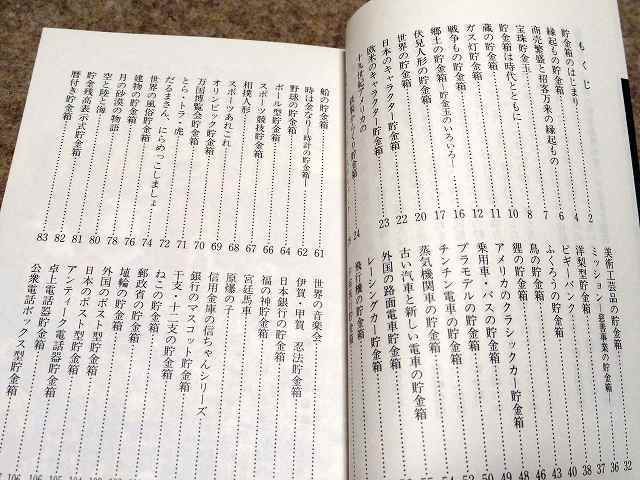 もくじ
貯金箱のはじまり 2
縁起もの貯金箱 4
商売繁盛と招客万来の縁起もの 6
宝珠貯金玉 7
貯金箱は時代とともに 8
蔵の貯金箱 10
ガス灯貯金箱 11
戦争もの貯金箱 12
郷土の貯金箱―貯金玉のいろいろ― 16
伏見人形の貯金箱 17
世界の貯金箱 20
日本のキャラクター貯金箱 22
欧米のキャラクター貯金箱 23
十九世紀アメリカの 貯金箱 24
美術工芸品の貯金箱 32
ミッション―慈善事業の貯金箱 36
洋梨型貯金箱 37
ピギーバンク 38
ふくろうの貯金箱 40
鳥の貯金箱 43
鯉の貯金箱 46
アメリカのクラシックカー貯金箱 48
乗用車・バスの貯金箱 49
プラモデルの貯金箱 50
チンチン電車の貯金箱 52
蒸気機関車の貯金箱 54
古い汽車と新しい電車の貯金箱 55
外国の路面電車貯金箱 56
レーシングカー貯金箱
飛行機の貯金箱
船の貯金箱 61
時は金なり―時計の貯金箱― 62
野球の貯金箱 64
ボール型貯金箱 66
スポーツ競技貯金箱 67
相撲人形 68
スポーツあれこれ 69
オリンピック貯金箱 70
万国博覧会貯金箱 71
とら・トラ・虎 72
だるまさん、にらめっこしましょ 74
世界の風俗貯金箱 76
建物の貯金箱 78
月の砂漠の物語 80
空と陸と海 81
貯金残高表示式貯金箱 82
暦付き貯金箱 83
世界の音楽会
伊賀・甲賀 忍法貯金箱
日本銀行の貯金箱
福の神貯金箱
宮廷馬車
原爆の子
信用金庫の信ちゃんシリーズ
銀行のマスコット貯金箱
干支・十二支の貯金箱
ねこの貯金箱
郵政省の貯金箱
埴輪の貯金箱
外国のポスト型貯金箱
日本のポスト型貯金箱
アンティーク電話器貯金箱
卓上電話器貯金箱
公衆電話ボックス型貯金箱